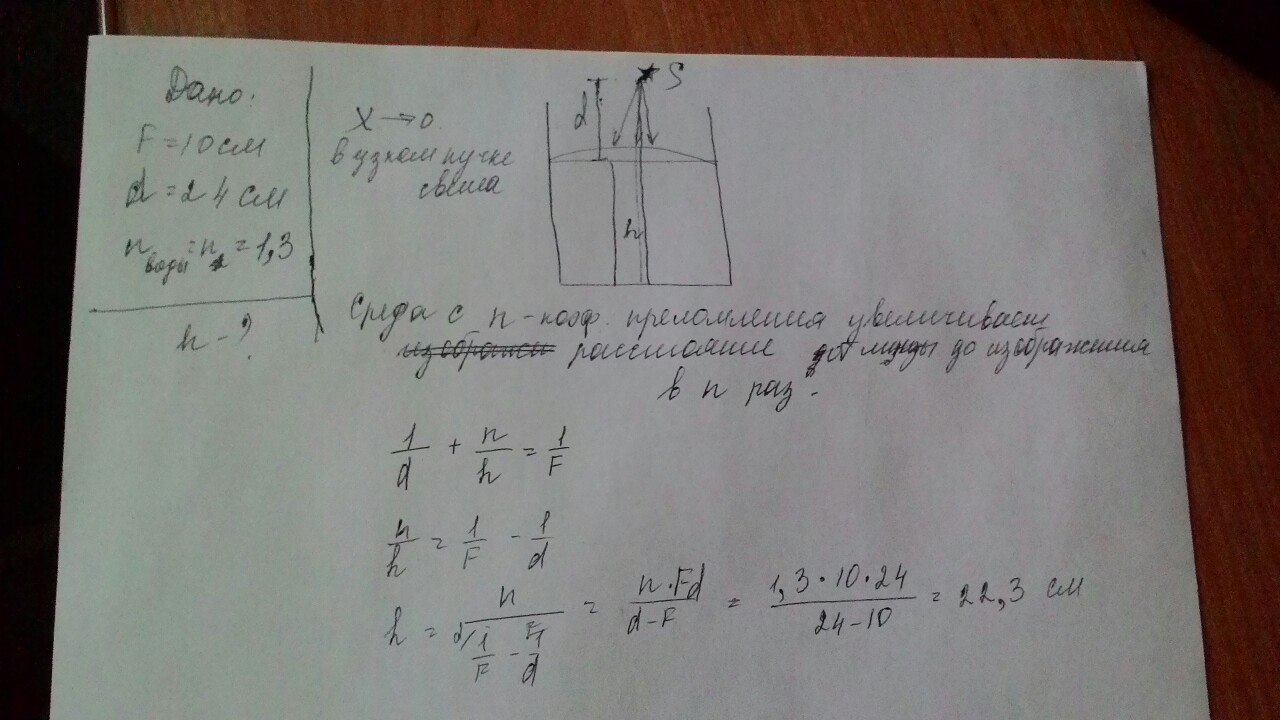 Дано:
F = 10 см
d = 24 см
n воды = n₂ = 1,3
h - ?
X → 0
в узком пучке
света
S
d
h
Среда с n - коэф. преломления увеличивает
расстояние от линзы до изображения
в n раз.
1/d + n/h = 1/F
n/h = 1/F - 1/d
h = n/(1/F - 1/d) = n·Fd/(d-F) = 1,3·10·24/(24-10) = 22,3 см